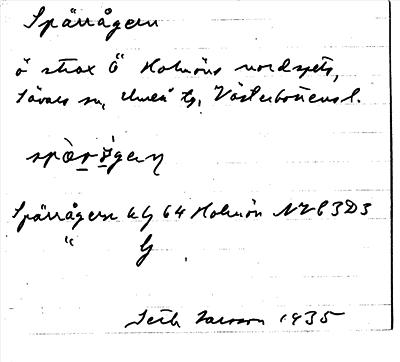 Spärrågern
ö strax Ö Holmöns nordspets,
Sävars sn, Umeå tg, Västerbottens l.
Spärrågern kg 64 Holmön NV C3D3
" G
Seth Larsson 1935